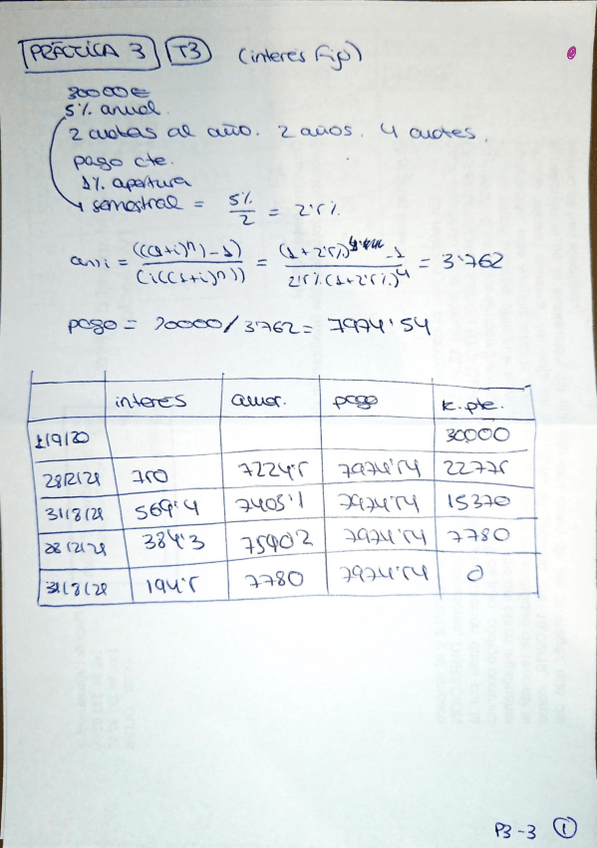 PRÁCTICA 3 T3 (interés fijo)
30000€
5% anual.
2 cuotas al año. 2 años. 4 cuotas.
pago cte.
1% apertura
semestral = 5%/2 = 2'5%
an¬i = (((1+i)^n)-1)/(i((1+i)^n)) = (1+2'5%)^4 -1/2'5%(1+2'5%)^4 = 3'762
pago = 30000/3'762 = 7974'54
interés amor. pago k. pte.
1/9/20 30000
28/2/21 750 7224'5 7974'54 22775
31/8/21 569'4 7405'1 7974'54 15370
384'3 7590'2 7974'54 7780
194'5 7780 7974'54 0
P3-3 1